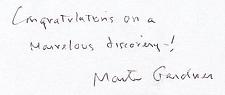 Congratulations on a
Marvelous discovery-!
Martin Gardner